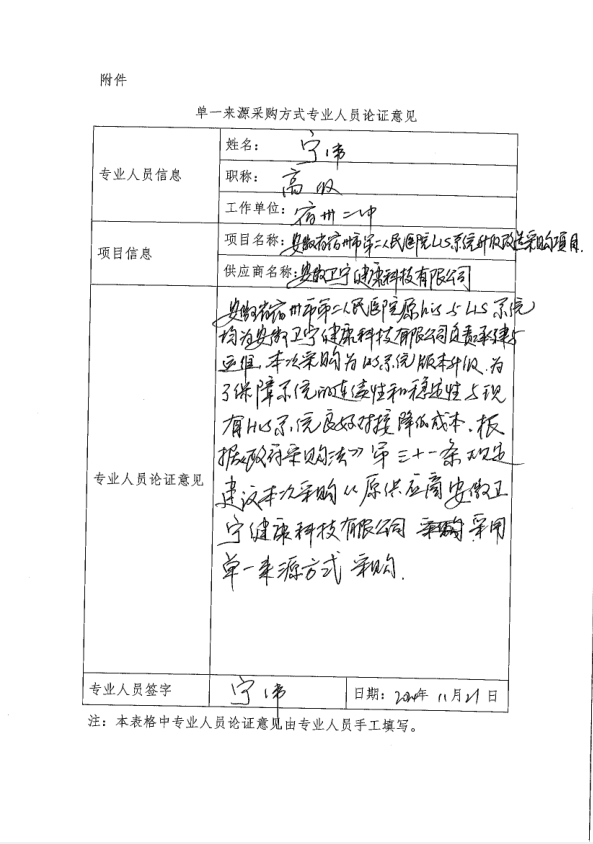 附件
单一来源采购方式专业人员论证意见
专业人员信息
姓名： 宁伟
职称： 高级
工作单位： 宿州二中
项目信息
项目名称： 安徽省宿州市第二人民医院LIS系统升级改造采购项目.
供应商名称： 安徽卫宁健康科技有限公司
专业人员论证意见
安徽省宿州市第二人民医院原HIS与LIS系统
均为安徽卫宁健康科技有限公司负责承建与
运维，本次采购为LIS系统版本升级，为
了保障系统的连续性和稳定性与现
有HIS系统良好对接降低成本，根
据《政府采购法》第三十一条规定
建议本次采购从原供应商安徽卫
宁健康科技有限公司 采用
单一来源方式 采购.
专业人员签字
宁伟
日期： 2024年 11月21日
注：本表格中专业人员论证意见由专业人员手工填写。